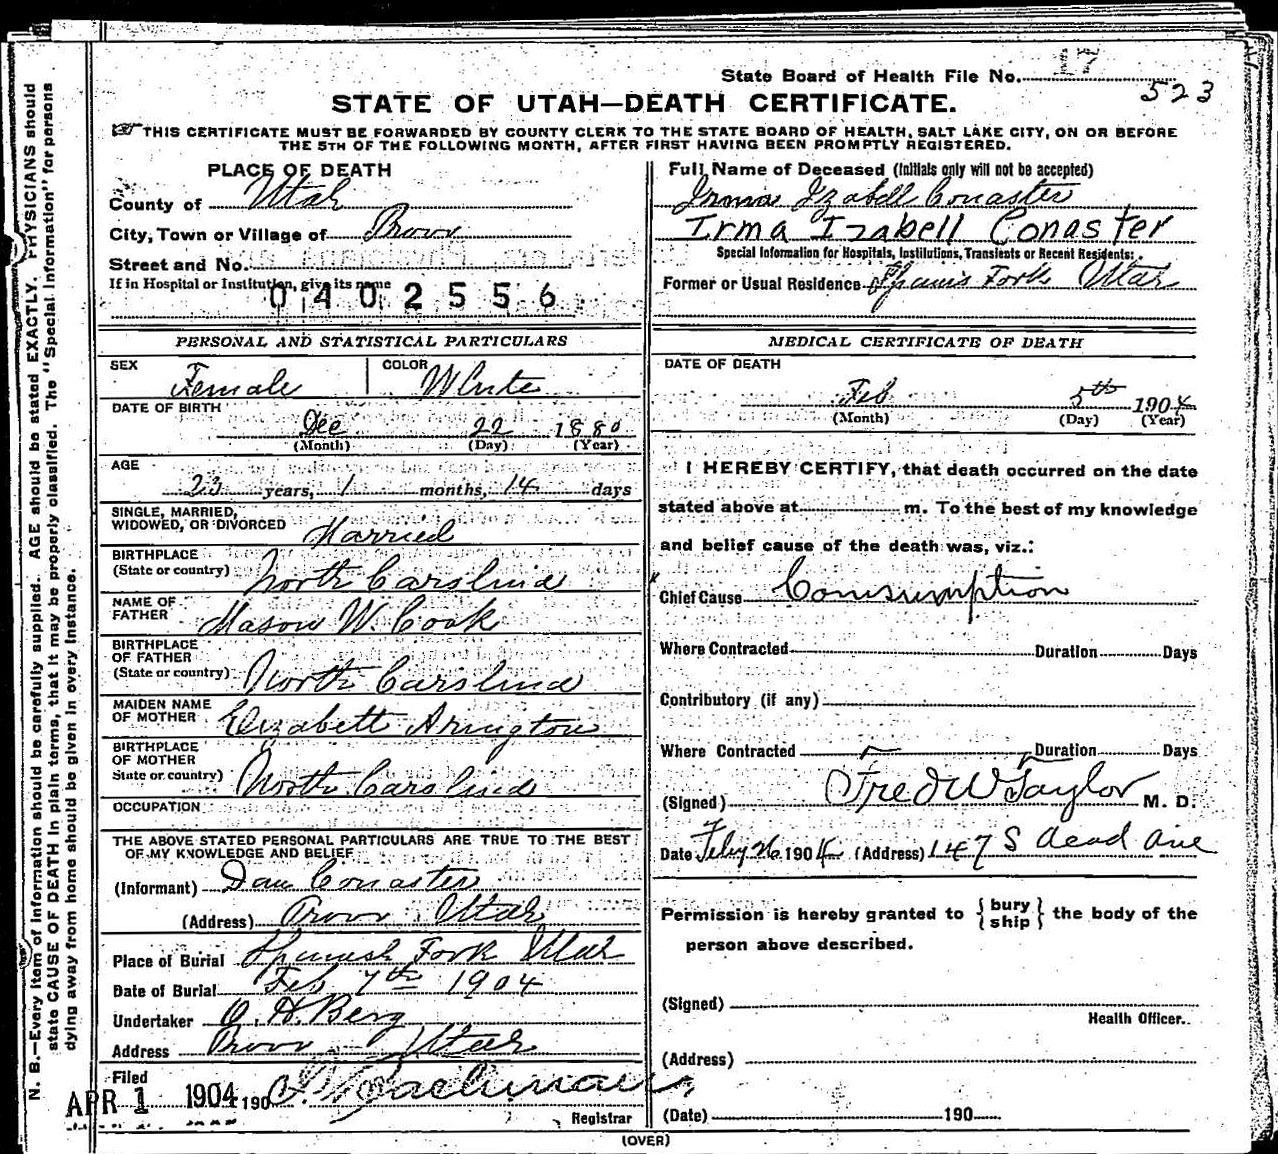 State Board of Health File No. 17
523
STATE OF UTAH—DEATH CERTIFICATE.
THIS CERTIFICATE MUST BE FORWARDED BY COUNTY CLERK TO THE STATE BOARD OF HEALTH, SALT LAKE CITY, ON OR BEFORE
THE 5TH OF THE FOLLOWING MONTH, AFTER FIRST HAVING BEEN PROMPTLY REGISTERED.
PLACE OF DEATH
County of Utah
City, Town or Village of Provo
Street and No.
If in Hospital or Institution, give its name
0402556
Full Name of Deceased (Initials only will not be accepted)
Irma Izabell Conaster
Irma Izabell Conaster
Special Information for Hospitals, Institutions, Transients or Recent Residents:
Former or Usual Residence Spanis Fork Utah
PERSONAL AND STATISTICAL PARTICULARS
SEX Female COLOR White
DATE OF BIRTH
Dec 22 1880
(Month) (Day) (Year)
AGE
23 years, 1 months, 14 days
SINGLE, MARRIED,
WIDOWED, OR DIVORCED Married
BIRTHPLACE
(State or country) North Carolina
NAME OF
FATHER Mason W. Cook
BIRTHPLACE
OF FATHER
(State or country) North Carolina
MAIDEN NAME
OF MOTHER Elizabett Arington
BIRTHPLACE
OF MOTHER
State or country) North Carolina
OCCUPATION
THE ABOVE STATED PERSONAL PARTICULARS ARE TRUE TO THE BEST
OF MY KNOWLEDGE AND BELIEF
(Informant) Dan Conaster
(Address) Provo Utah
Place of Burial Spanish Fork Utah
Date of Burial Feb 7th 1904
Undertaker O. H. Berg
Address Provo Utah
Filed
APR 1 1904 190
Registrar
MEDICAL CERTIFICATE OF DEATH
DATE OF DEATH
Feb 5th 1904
(Month) (Day) (Year)
I HEREBY CERTIFY, that death occurred on the date
stated above at m. To the best of my knowledge
and belief cause of the death was, viz.:
Chief Cause Comsumption
Where Contracted Duration Days
Contributory (if any)
Where Contracted Duration Days
(Signed) Fred W Taylor M. D.
Date Feby 26 1904 (Address) 147 S Acad Ave
Permission is hereby granted to { bury
ship } the body of the
person above described.
(Signed)
Health Officer.
(Address)
(Date) 190
(OVER)
N. B.—Every item of information should be carefully supplied. AGE should be stated EXACTLY. PHYSICIANS should
state CAUSE OF DEATH in plain terms, that it may be properly classified. The "Special Information" for persons
dying away from home should be given in every instance.